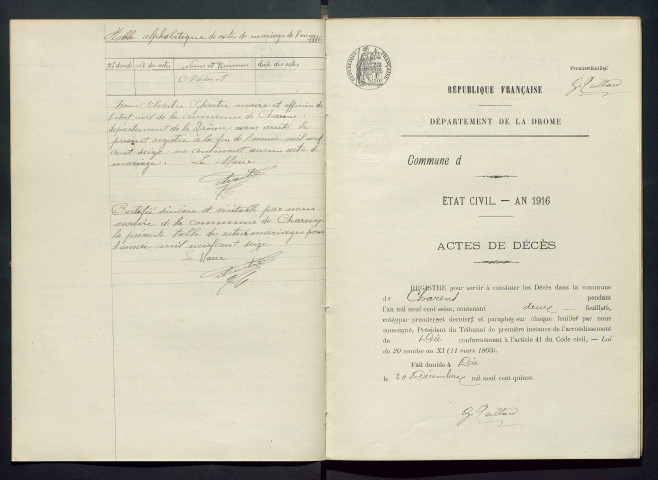 Table alphabétique des actes de mariage de l'année
1916
Nos d'ord. Nos des actes Noms et Prénoms date des actes
Néant
Nous Silvestre Silvestre maire et officier de
l'état civil de la commune de Charens
département de la Drôme avons arrêté le
présent registre à la fin de l'année mil neuf
cent seize ne contenant aucun acte de
mariage. Le Maire
Certifié sincère et véritable par nous
maire de la commune de Charens
la présente table des actes mariages pour
l'année mil neuf cent seize
Le Maire
RÉPUBLIQUE FRANÇAISE
Premier feuillet
G. Paillard
RÉPUBLIQUE FRANÇAISE
DÉPARTEMENT DE LA DROME
Commune d
ÉTAT CIVIL. — AN 1916
ACTES DE DÉCÈS
REGISTRE pour servir à constater les Décès dans la commune
de Charens pendant
l'an mil neuf cent seize, contenant deux feuillets,
cotés par premier et dernier et paraphés sur chaque feuillet par nous
soussigné, Président du Tribunal de première instance de l'arrondissement
de Die conformément à l'article 41 du Code civil, — Loi
du 20 ventôse an XI (11 mars 1803).
Fait double à Die
le 20 Décembre mil neuf cent quinze.
G. Paillard